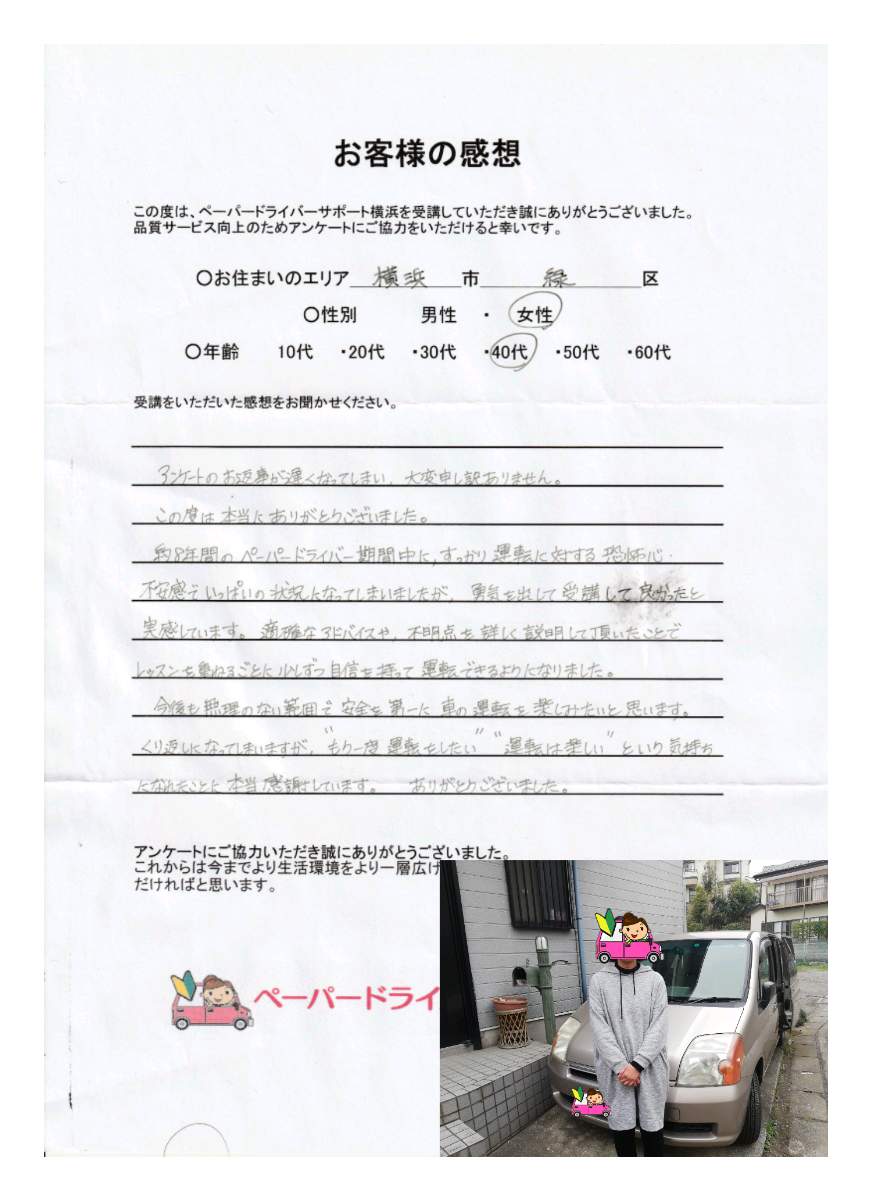 お客様の感想
この度は、ペーパードライバーサポート横浜を受講していただき誠にありがとうございました。
品質サービス向上のためアンケートにご協力をいただけると幸いです。
〇お住まいのエリア 横浜 市 緑 区
〇性別 男性 ・ 女性
〇年齢 10代 ・20代 ・30代 ・40代 ・50代 ・60代
受講をいただいた感想をお聞かせください。
アンケートのお返事が遅くなってしまい、大変申し訳ありません。
この度は本当にありがとうございました。
約8年間のペーパードライバー期間中に、すっかり運転に対する恐怖心・
不安感でいっぱいの状況になってしまいましたが、勇気を出して受講して良かったと
実感しています。適確なアドバイスや、不明点を詳しく説明して頂いたことで
レッスンを重ねるごとに少しずつ自信を持って運転できるようになりました。
今後も無理のない範囲で安全を第一に車の運転を楽しみたいと思います。
くり返しになってしまいますが、"もう一度運転をしたい" "運転は楽しい"という気持ち
になれたことに本当感謝しています。 ありがとうございました。
アンケートにご協力いただき誠にありがとうございました。
これからは今までより生活環境をより一層広げ
だければと思います。
ペーパードライ